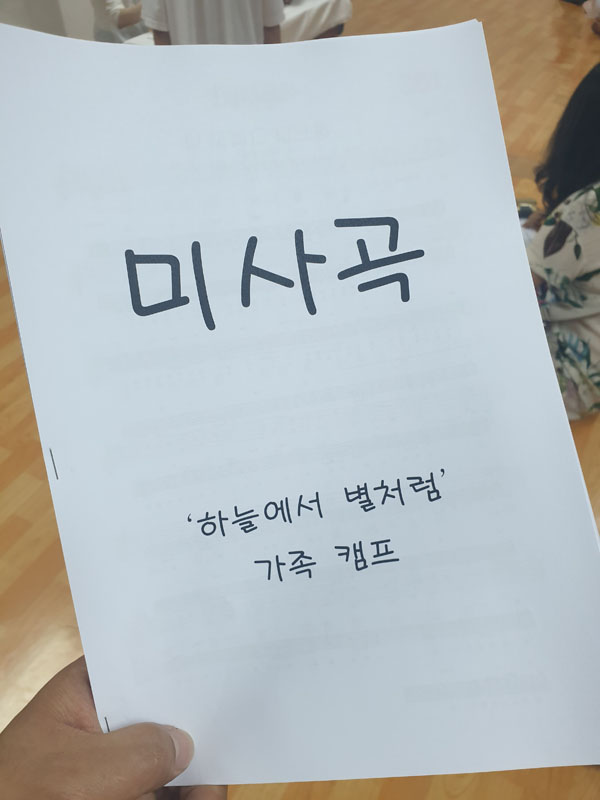 미사곡
‘하늘에서 별처럼’
가족 캠프